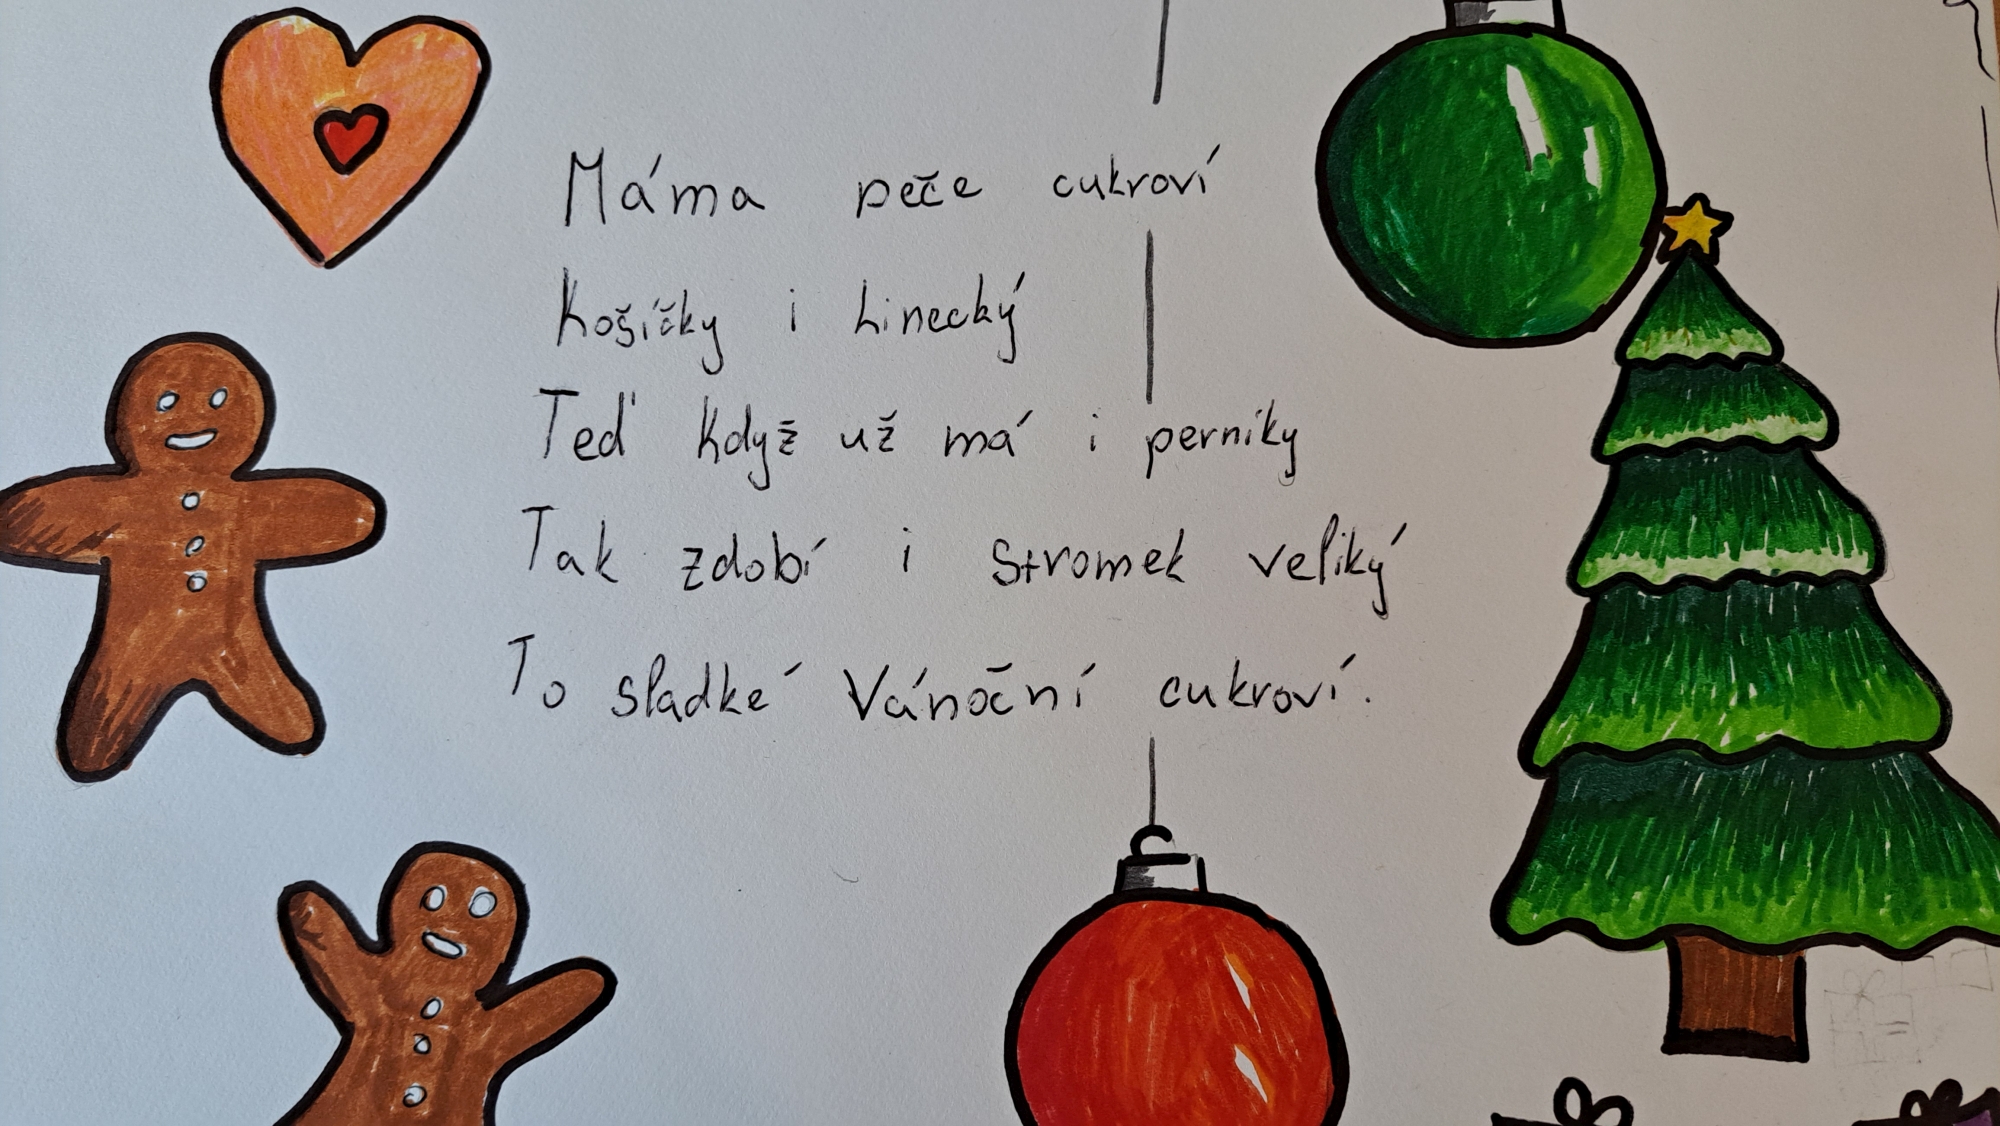 Máma peče cukroví
Košíčky i Linecký
Teď když už má i perníky
Tak zdobí i stromek veliký
To sladké Vánoční cukroví.